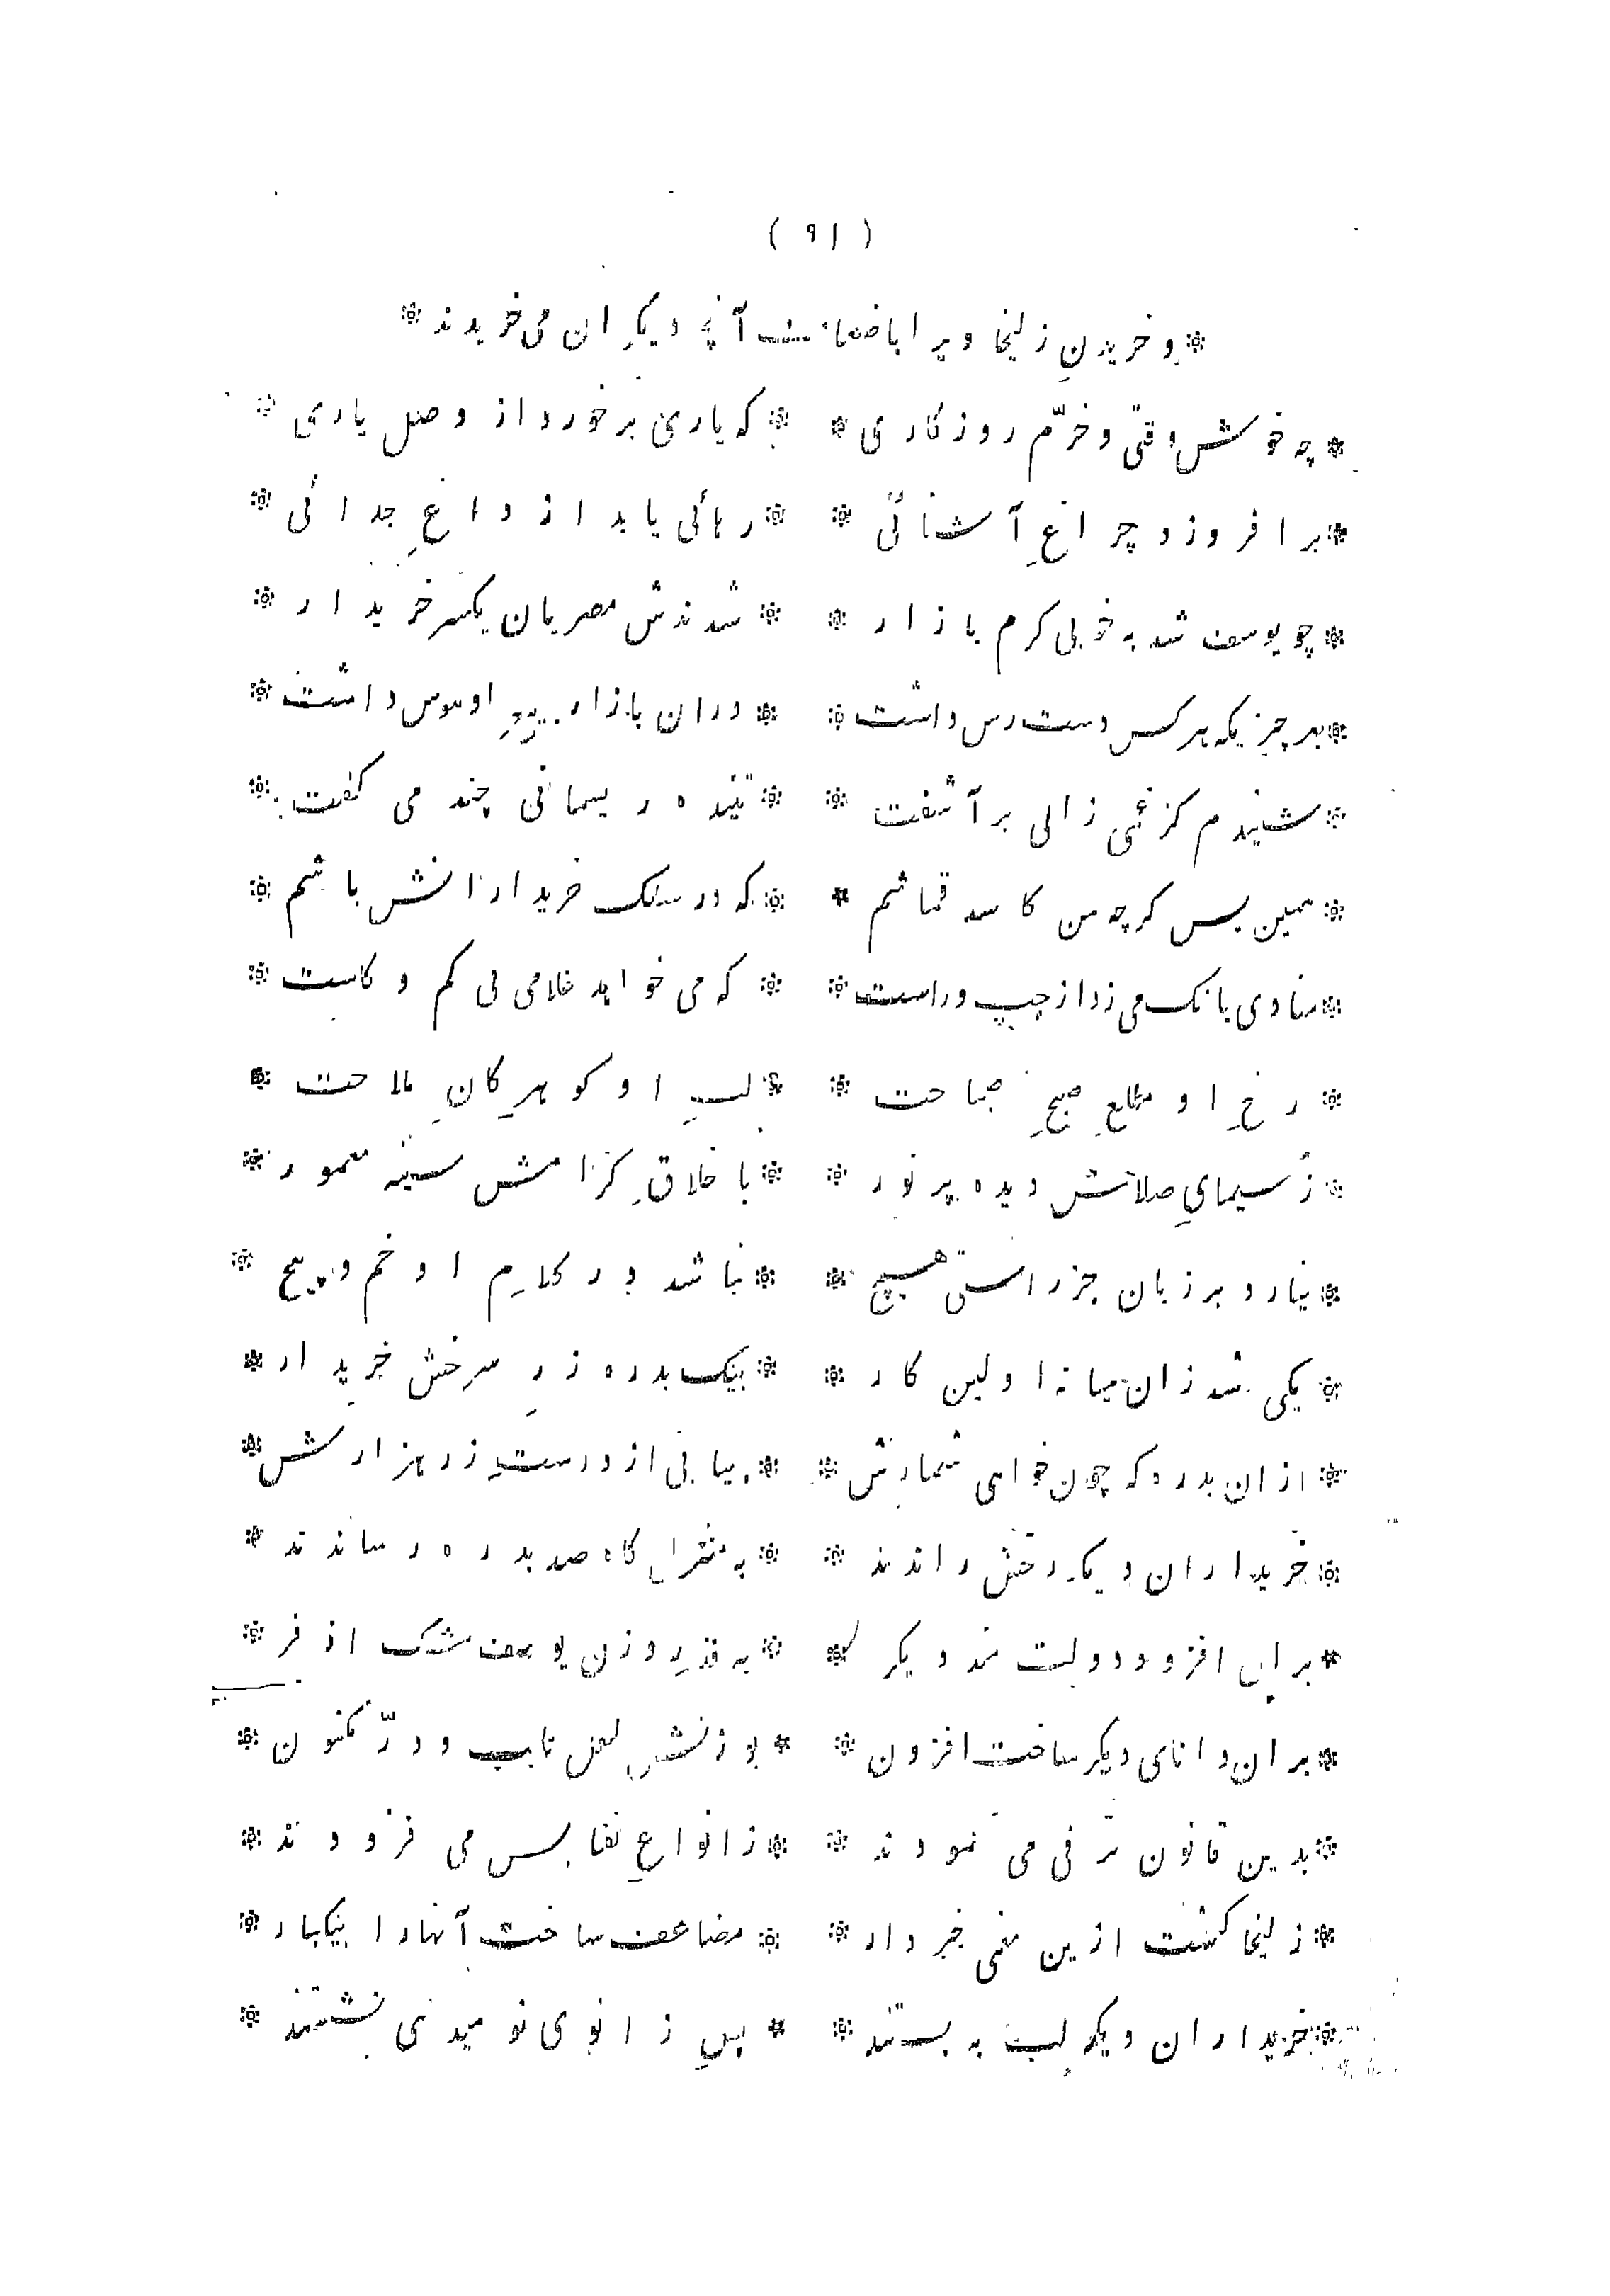 ( ۹۱ )
* و خریدنِ زلیخا ویرا باضعاف آنچه دیکران می خریدند *
* چه خوش وقتی و خرّم روزکاری * * که یاری بر خورد از وصل یاری *
* بر افروزد چراغِ آشنائی * * رهائی یابد از داغِ جدائی *
* چو یوسف شد به خوبی کرم بازار * * شدندش مصریان یکسر خریدار *
* بهر چیزیکه هر کس دست رس داشت * * دران بازار بیع او هوس داشت *
* شنیدم کز غمی زالی بر آشفت * * تنیده ریسمانی چند می کفت *
* همین بس کرچه من کاسد قماشم * * که در سلک خریدارانش باشم *
* منادی بانک می زد از چپ و راست * * که می خواهد غلامی بی کم و کاست *
* رخِ او مطلعِ صبحِ صباحت * * لبِ او کوهرِ کانِ ملاحت *
* ز سیمایِ صلاحش دیده پر نور * * با خلاقِ کرامش سینه معمور *
* نیارد بر زبان جز راستی هیچ * * نباشد در کلامِ او خم و پیچ *
* یکی شد زان میانه اولین کار * * بیک بدره زرِ سرخش خریدار *
* ازان بدره که چون خواهی شمارش * * بیابی از درستِ زر هزارش *
* خریداران دیکر رخش راندند * * به منزل کاه صد بدره رساندند *
* بر ایں افزود دولت مند دیکر * * به قدرِ وزن یوسف مشک اذفر *
* بران دانای دیکر ساخت افزون * * بوزنش لعل ناب و درّ مکنون *
* بدین قانون ترقی می نمودند * * ز انواعِ نفایس می فزودند *
* زلیخا کشت ازین معنی خبردار * * مضاعف ساخت آنهارا بیکبار *
* خریداران دیکر لب به بستند * * پسِ زانوی نومیدی نشستند *